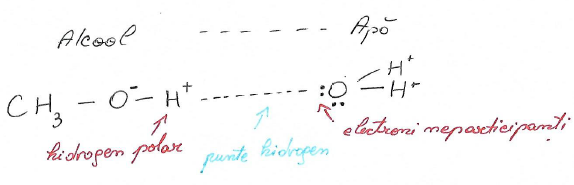 Alcool - - - - - Apă
H⁺
CH₃ - O⁻ - H⁺ - - - - - - - - :Ö - H⁺
hidrogen polar punte hidrogen electroni neparticipanți